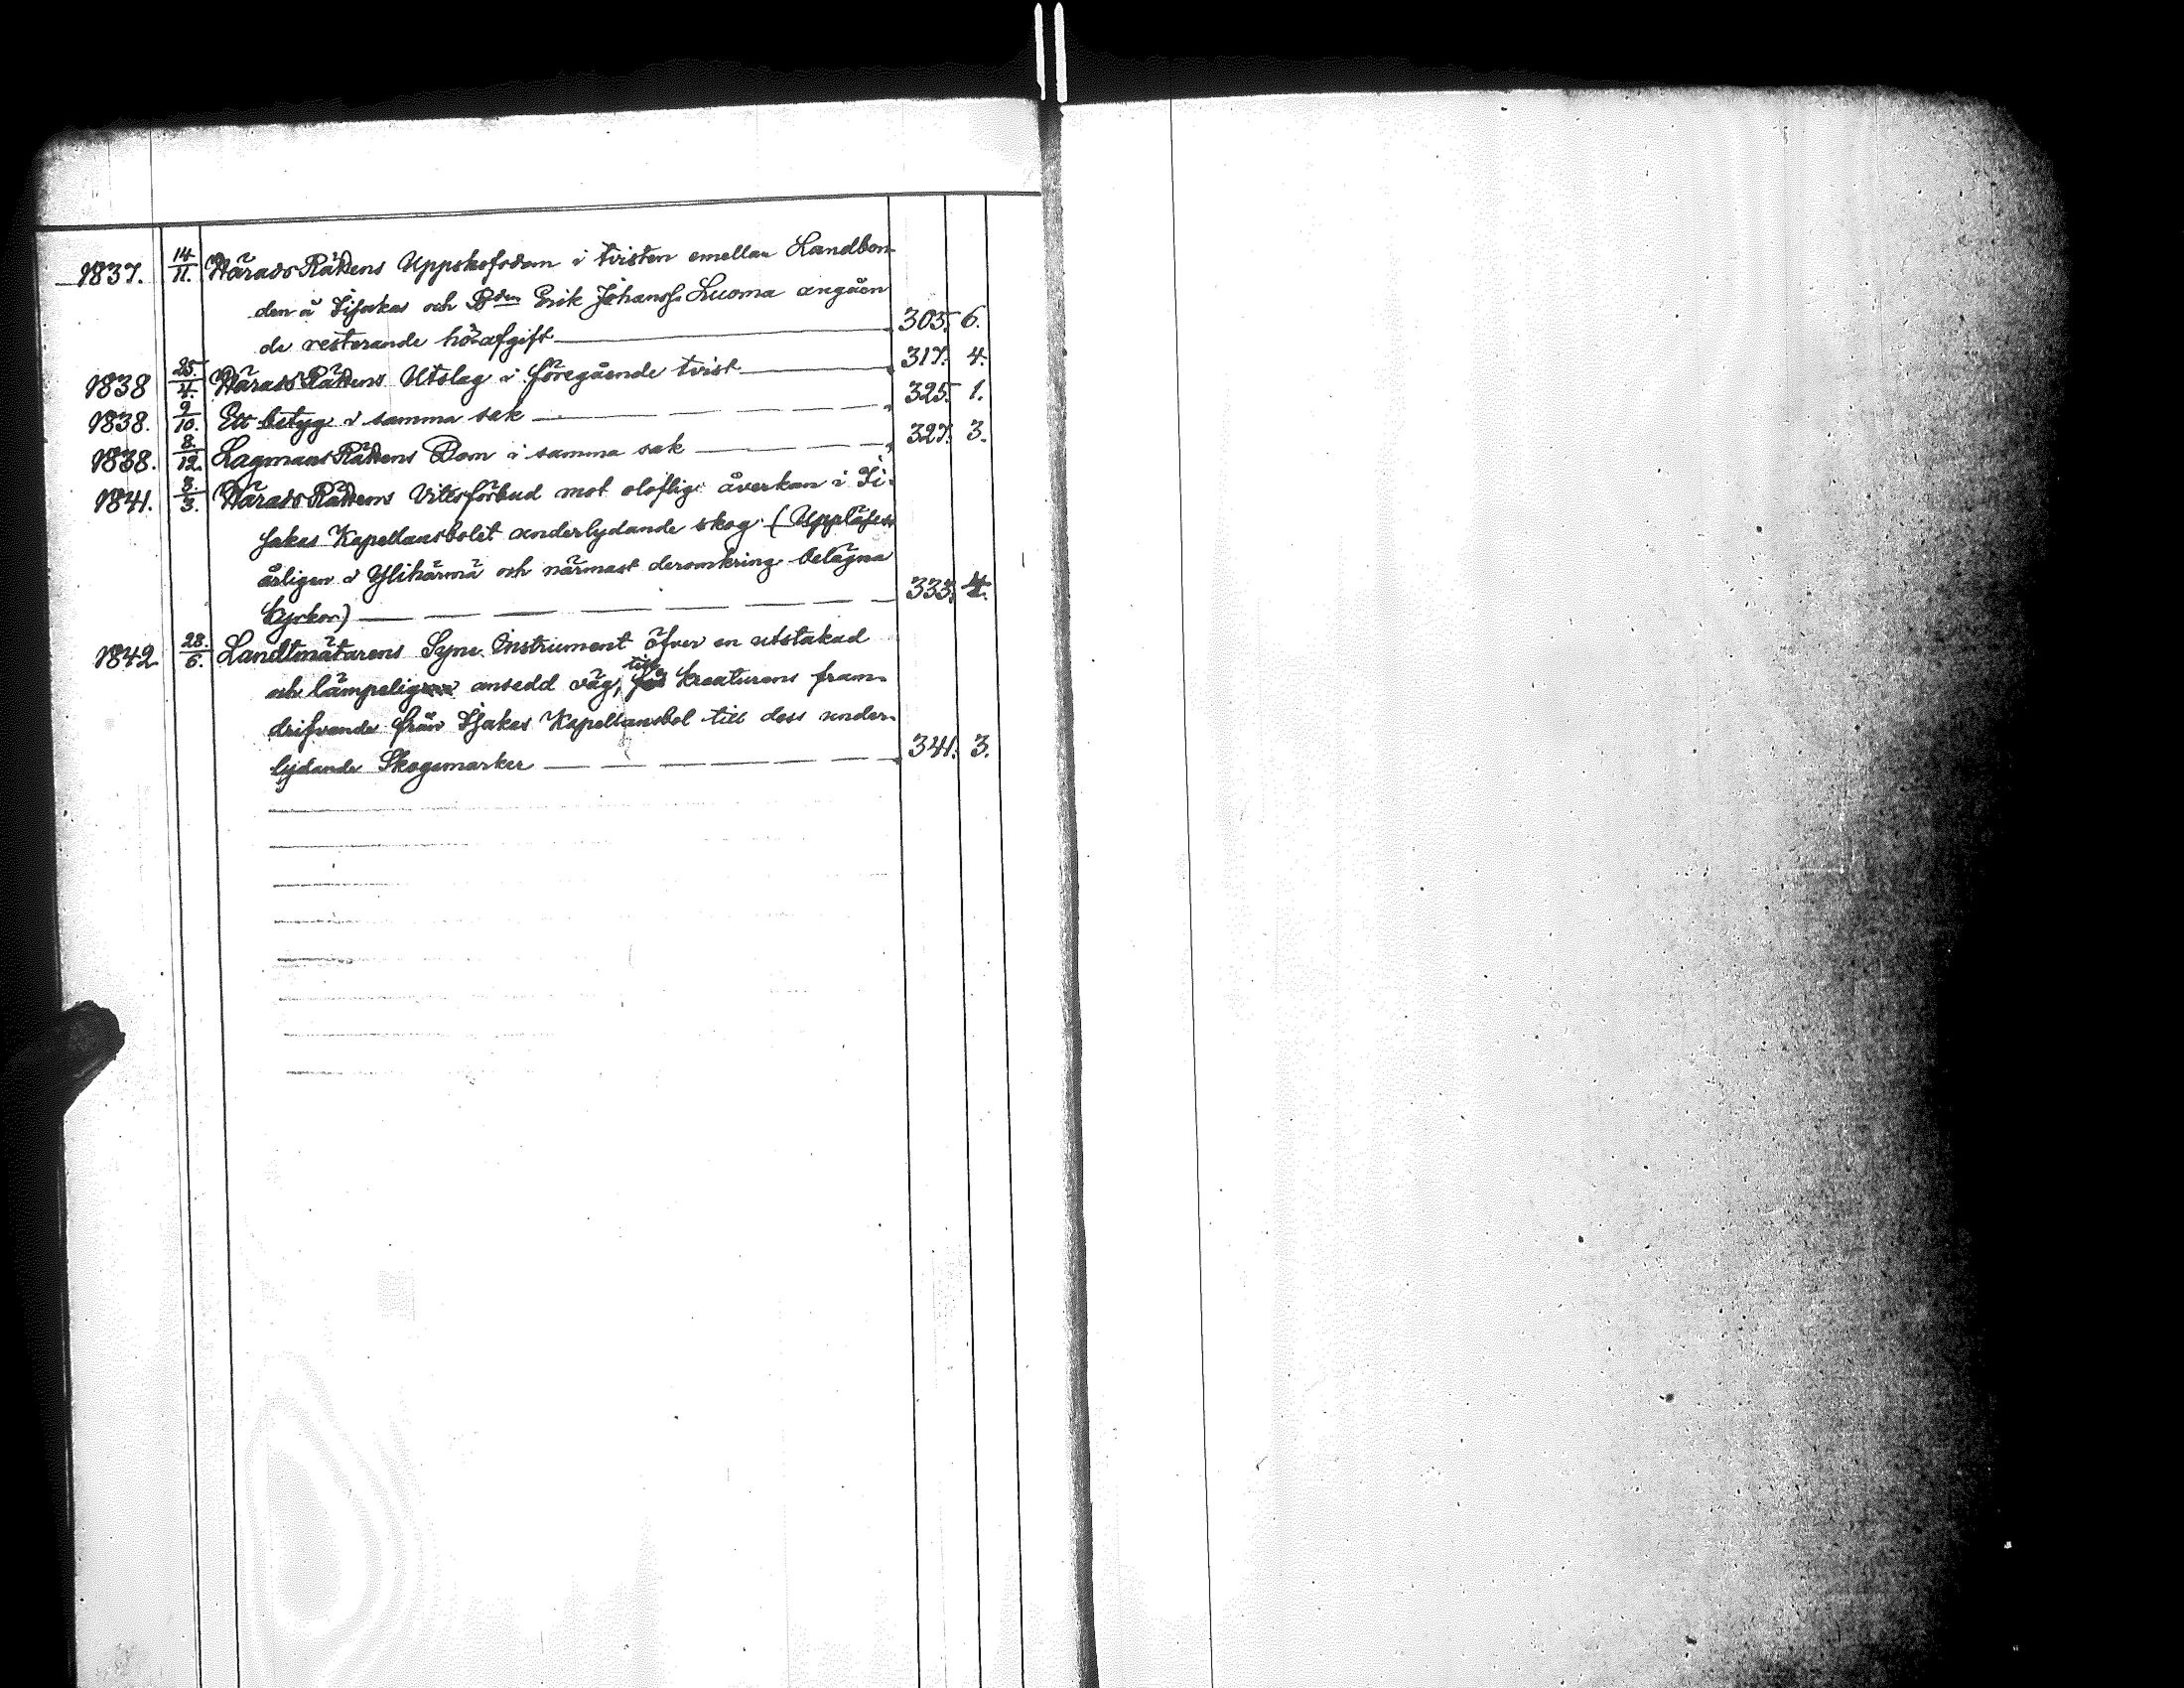 1837. 14/11. HäradsRättens Uppskofsdom i tvisten emellan Landbon-
den å Tijakas och Bden Erik Johanss. Luoma angåen
de resterande höafgift 305. 6.
1838 25./4. HäradsRättens Utslag i föregående tvist 317. 4.
1838. 9/10. Ett betyg i samma sak 325. 1.
1838. 8./12. LagmansRättens Dom i samma sak 327. 3.
1841. 3./3. HäradsRättens Vitesförbud mot oloflig åverkan i
Kapellansbolet underlydande skog (Uppläses
årligen i Ylihärmä och närmast deromkring belägna
kyrkor) 333. 4.
1842 28./6. Landtmätarens Syne Instrument öfver en utstakad
och lämpelig ansedd väg, till kreaturens fram-
drifvande från Kapellansbol till dess under-
lydande Skogsmarker 341. 3.